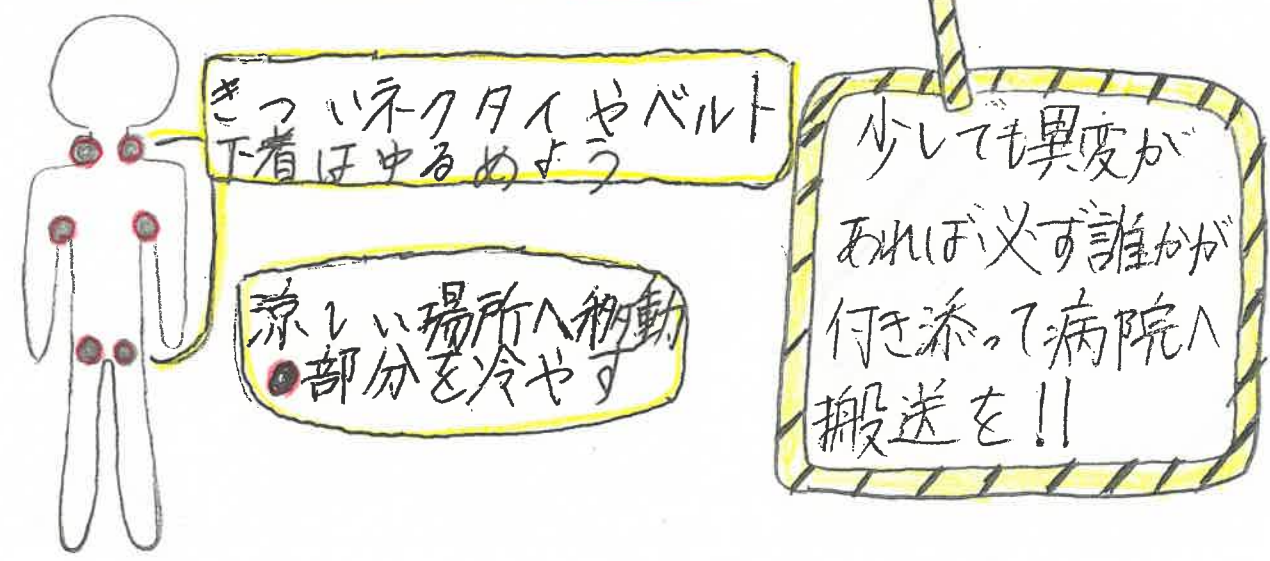 きついネクタイやベルト
下着はゆるめよう
涼しい場所へ移動
●部分を冷やす
少しでも異変が
あれば必ず誰かが
付き添って病院へ
搬送を!!